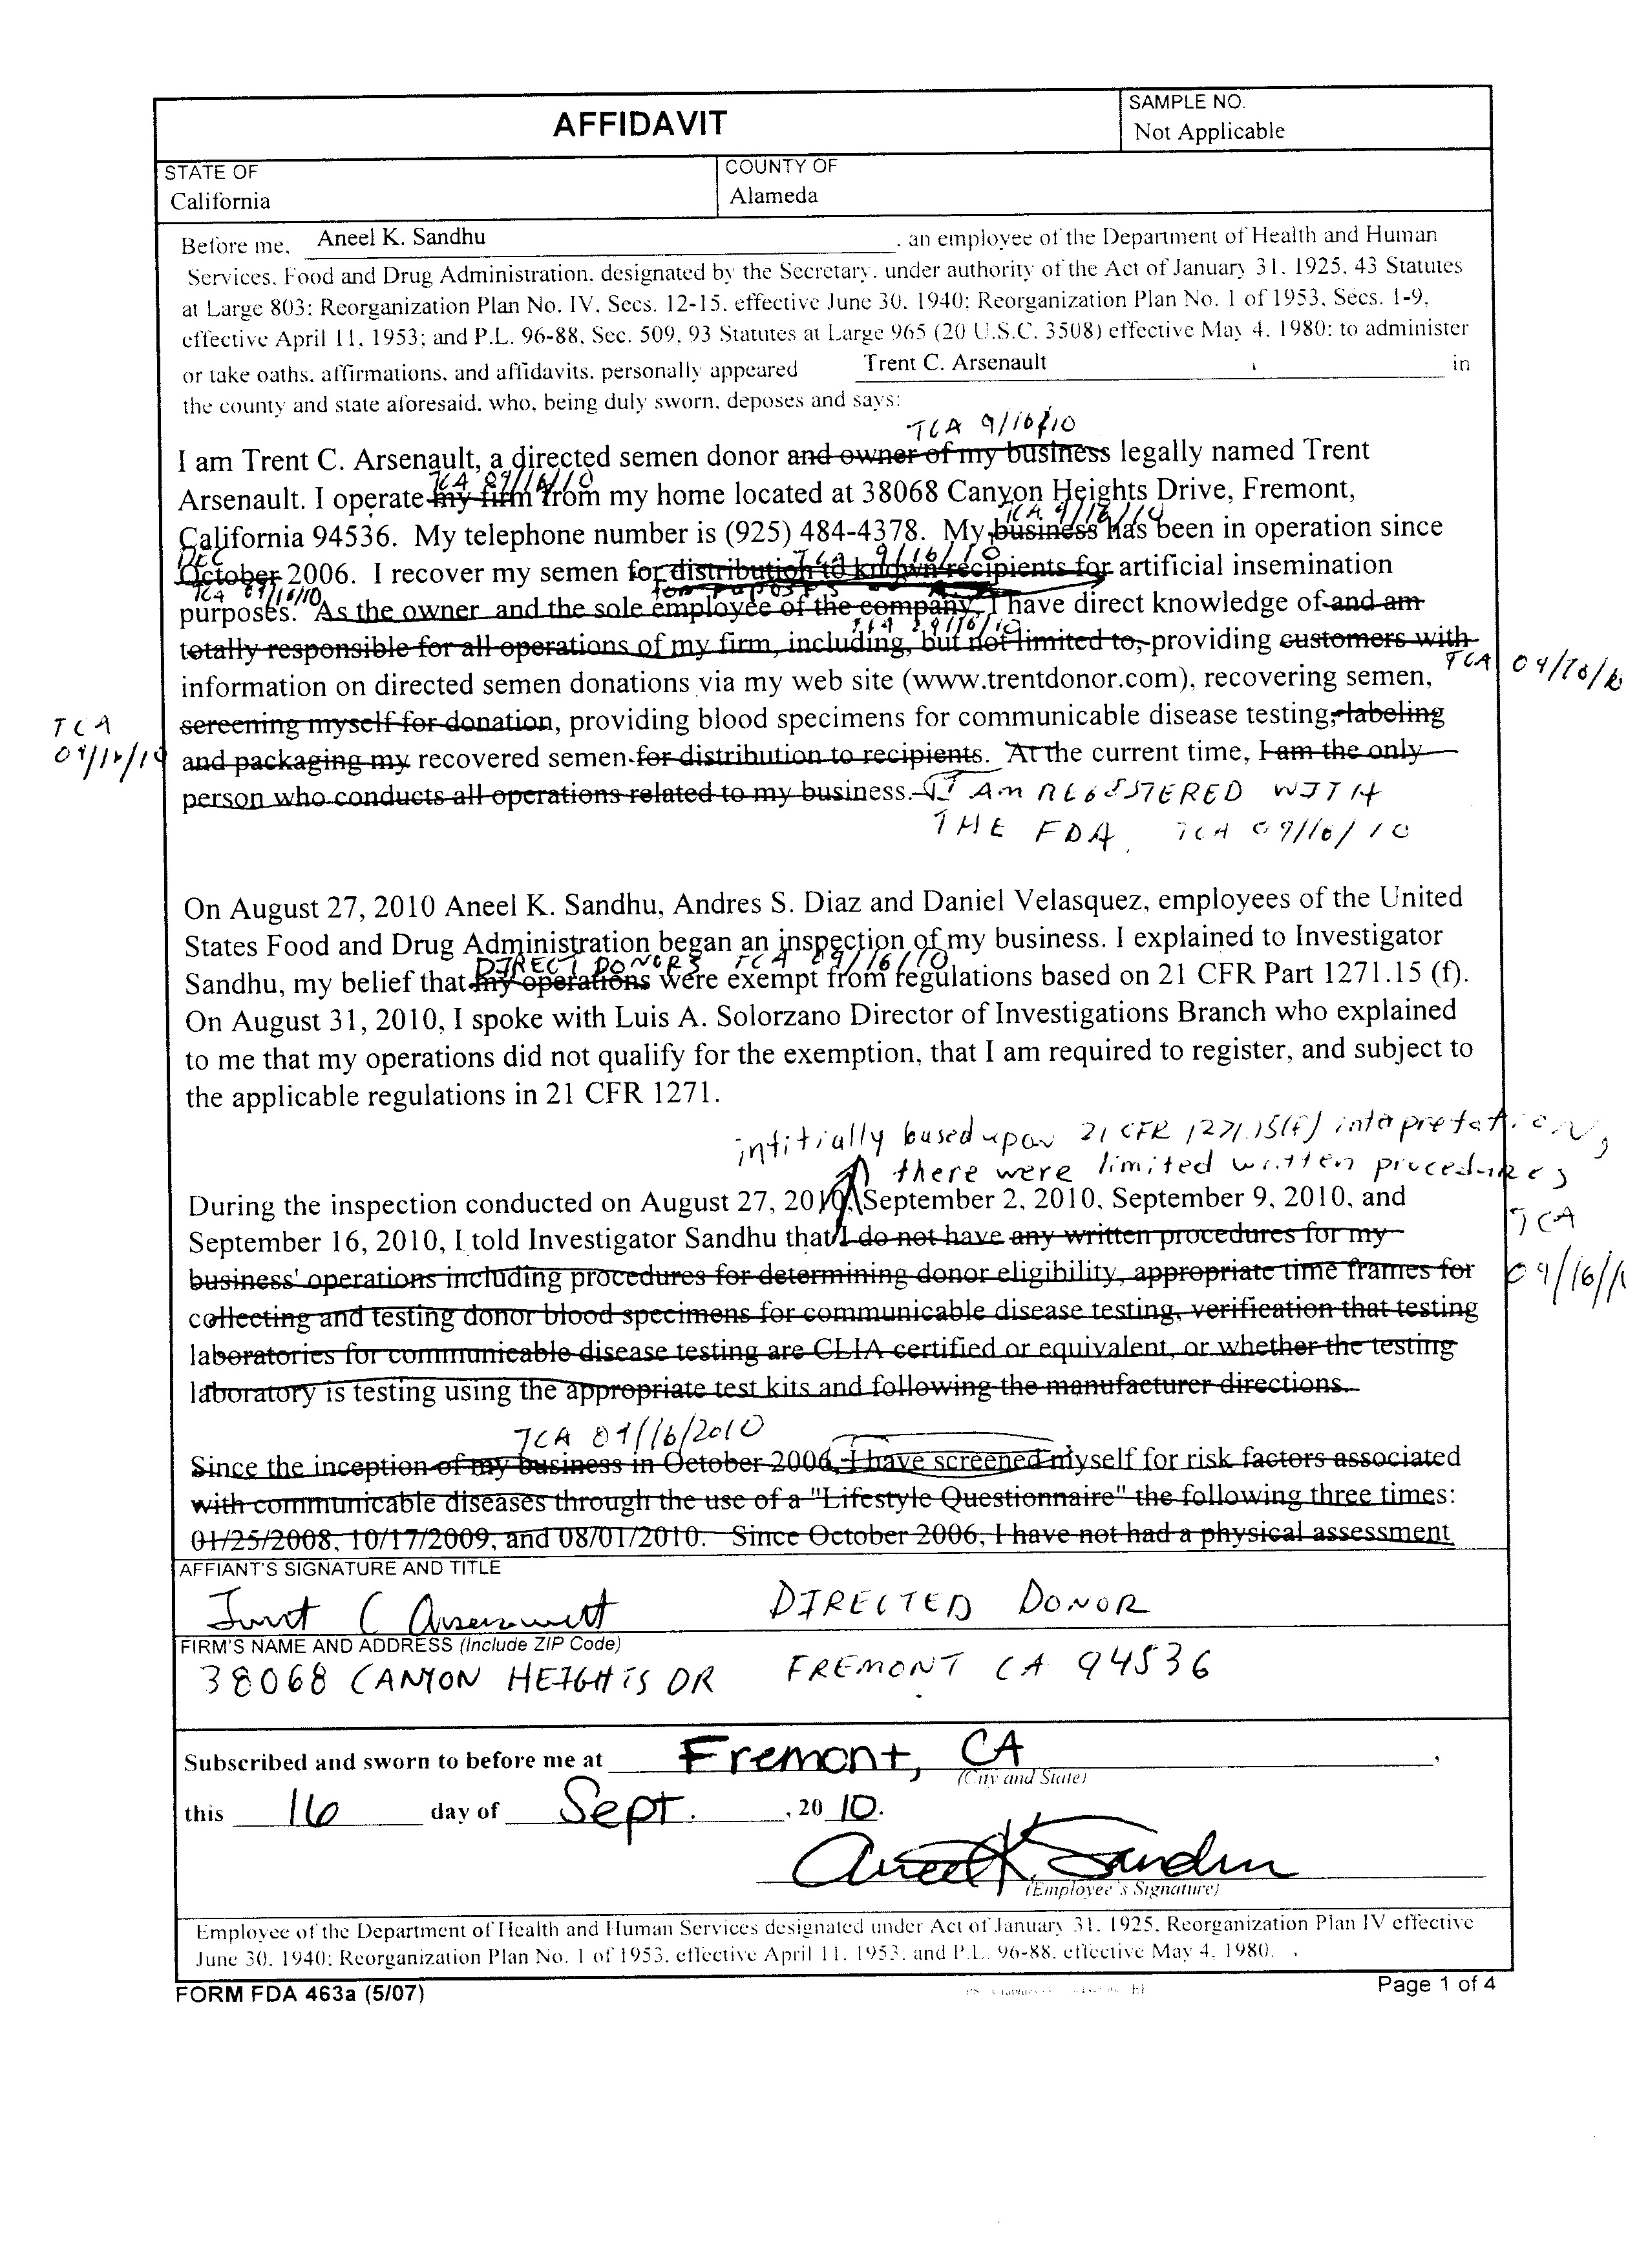 AFFIDAVIT
SAMPLE NO.
Not Applicable
STATE OF
California
COUNTY OF
Alameda
Before me, Aneel K. Sandhu , an employee of the Department of Health and Human
Services, Food and Drug Administration, designated by the Secretary, under authority of the Act of January 31, 1925, 43 Statutes
at Large 803; Reorganization Plan No. IV, Secs. 12-15, effective June 30, 1940; Reorganization Plan No. 1 of 1953, Secs. 1-9,
effective April 11, 1953; and P.L. 96-88, Sec. 509, 93 Statutes at Large 965 (20 U.S.C. 3508) effective May 4, 1980; to administer
or take oaths, affirmations, and affidavits, personally appeared Trent C. Arsenault in
the county and state aforesaid, who, being duly sworn, deposes and says:
TCA 9/16/10
I am Trent C. Arsenault, a directed semen donor and owner of my business legally named Trent
TCA 09/16/10
Arsenault. I operate my firm from my home located at 38068 Canyon Heights Drive, Fremont,
TCA 9/16/10
California 94536. My telephone number is (925) 484-4378. My business has been in operation since
DEC TCA 9/16/10
October 2006. I recover my semen for distribution to known recipients for artificial insemination
TCA 09/16/10 for purposes
purposes. As the owner and the sole employee of the company, I have direct knowledge of and am
TCA 09/16/10
totally responsible for all operations of my firm, including, but not limited to, providing customers with
TCA 09/16/10
information on directed semen donations via my web site (www.trentdonor.com), recovering semen,
TCA
screening myself for donation, providing blood specimens for communicable disease testing, labeling
09/16/10
and packaging my recovered semen for distribution to recipients. At the current time, I am the only
person who conducts all operations related to my business. I AM REGISTERED WITH
THE FDA. TCA 09/16/10
On August 27, 2010 Aneel K. Sandhu, Andres S. Diaz and Daniel Velasquez, employees of the United
States Food and Drug Administration began an inspection of my business. I explained to Investigator
DIRECT DONORS TCA 09/16/10
Sandhu, my belief that my operations were exempt from regulations based on 21 CFR Part 1271.15 (f).
On August 31, 2010, I spoke with Luis A. Solorzano Director of Investigations Branch who explained
to me that my operations did not qualify for the exemption, that I am required to register, and subject to
the applicable regulations in 21 CFR 1271.
intitially based upon 21 CFR 1271.15(f) intapretation,
there were limited written procedures
During the inspection conducted on August 27, 2010, September 2, 2010, September 9, 2010, and
TCA
September 16, 2010, I told Investigator Sandhu that I do not have any written procedures for my
09/16/1
business' operations including procedures for determining donor eligibility, appropriate time frames for
collecting and testing donor blood specimens for communicable disease testing, verification that testing
laboratories for communicable disease testing are CLIA certified or equivalent, or whether the testing
laboratory is testing using the appropriate test kits and following the manufacturer directions.
TCA 09/16/2010
Since the inception of my business in October 2006, I have screened myself for risk factors associated
with communicable diseases through the use of a "Lifestyle Questionnaire" the following three times:
01/25/2008, 10/17/2009, and 08/01/2010. Since October 2006, I have not had a physical assessment
AFFIANT'S SIGNATURE AND TITLE
Trent C Arsenault DIRECTED DONOR
FIRM'S NAME AND ADDRESS (Include ZIP Code)
38068 CANYON HEIGHTS DR FREMONT CA 94536
Subscribed and sworn to before me at Fremont, CA ,
(City and State)
this 16 day of Sept. , 20 10.
Aneel K. Sandhu
(Employee's Signature)
Employee of the Department of Health and Human Services designated under Act of January 31, 1925, Reorganization Plan IV effective
June 30, 1940; Reorganization Plan No. 1 of 1953, effective April 11, 1953; and P.L. 96-88, effective May 4, 1980.
FORM FDA 463a (5/07)
Page 1 of 4